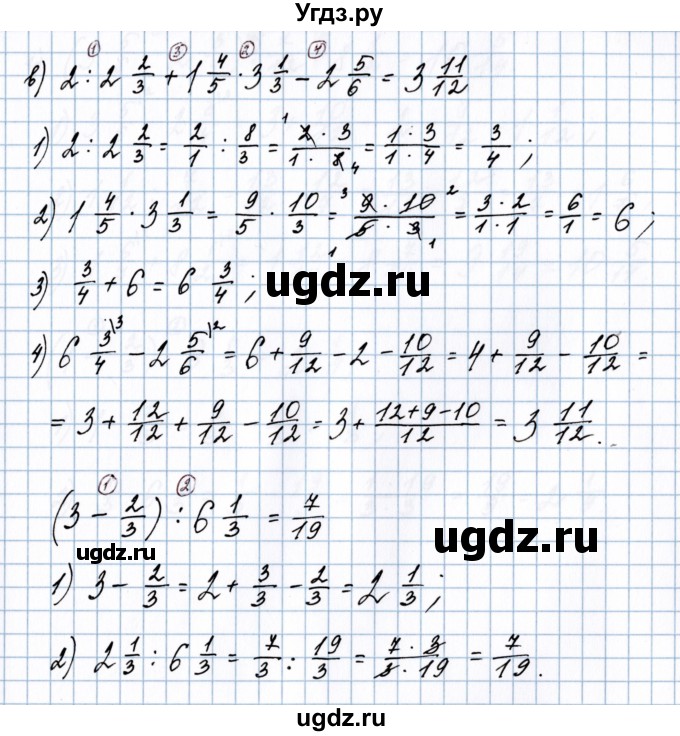 Угдз.ру
① ③ ② ④
в) 2 : 2 2/3 + 1 4/5 · 3 1/3 − 2 5/6 = 3 11/12
1) 2 : 2 2/3 = 2/1 : 8/3 = ¹ 2 · 3/1 · 8 ₄ = 1 · 3/1 · 4 = 3/4 ;
2) 1 4/5 · 3 1/3 = 9/5 · 10/3 = ³ 9 · 10 ²/₁ 5 · 3 ₁ = 3 · 2/1 · 1 = 6/1 = 6 ;
ugdz.ru
3) 3/4 + 6 = 6 3/4 ;
ugdz.ru
4) 6 3/4 \3 − 2 5/6 \2 = 6 + 9/12 − 2 − 10/12 = 4 + 9/12 − 10/12 =
= 3 + 12/12 + 9/12 − 10/12 = 3 + 12+9−10/12 = 3 11/12.
ugdz.ru
① ②
(3 − 2/3) : 6 1/3 = 7/19
ugdz.ru
ugdz.ru
1) 3 − 2/3 = 2 + 3/3 − 2/3 = 2 1/3 ;
2) 2 1/3 : 6 1/3 = 7/3 : 19/3 = 7 · 3/3 · 19 = 7/19.
ugdz.ru